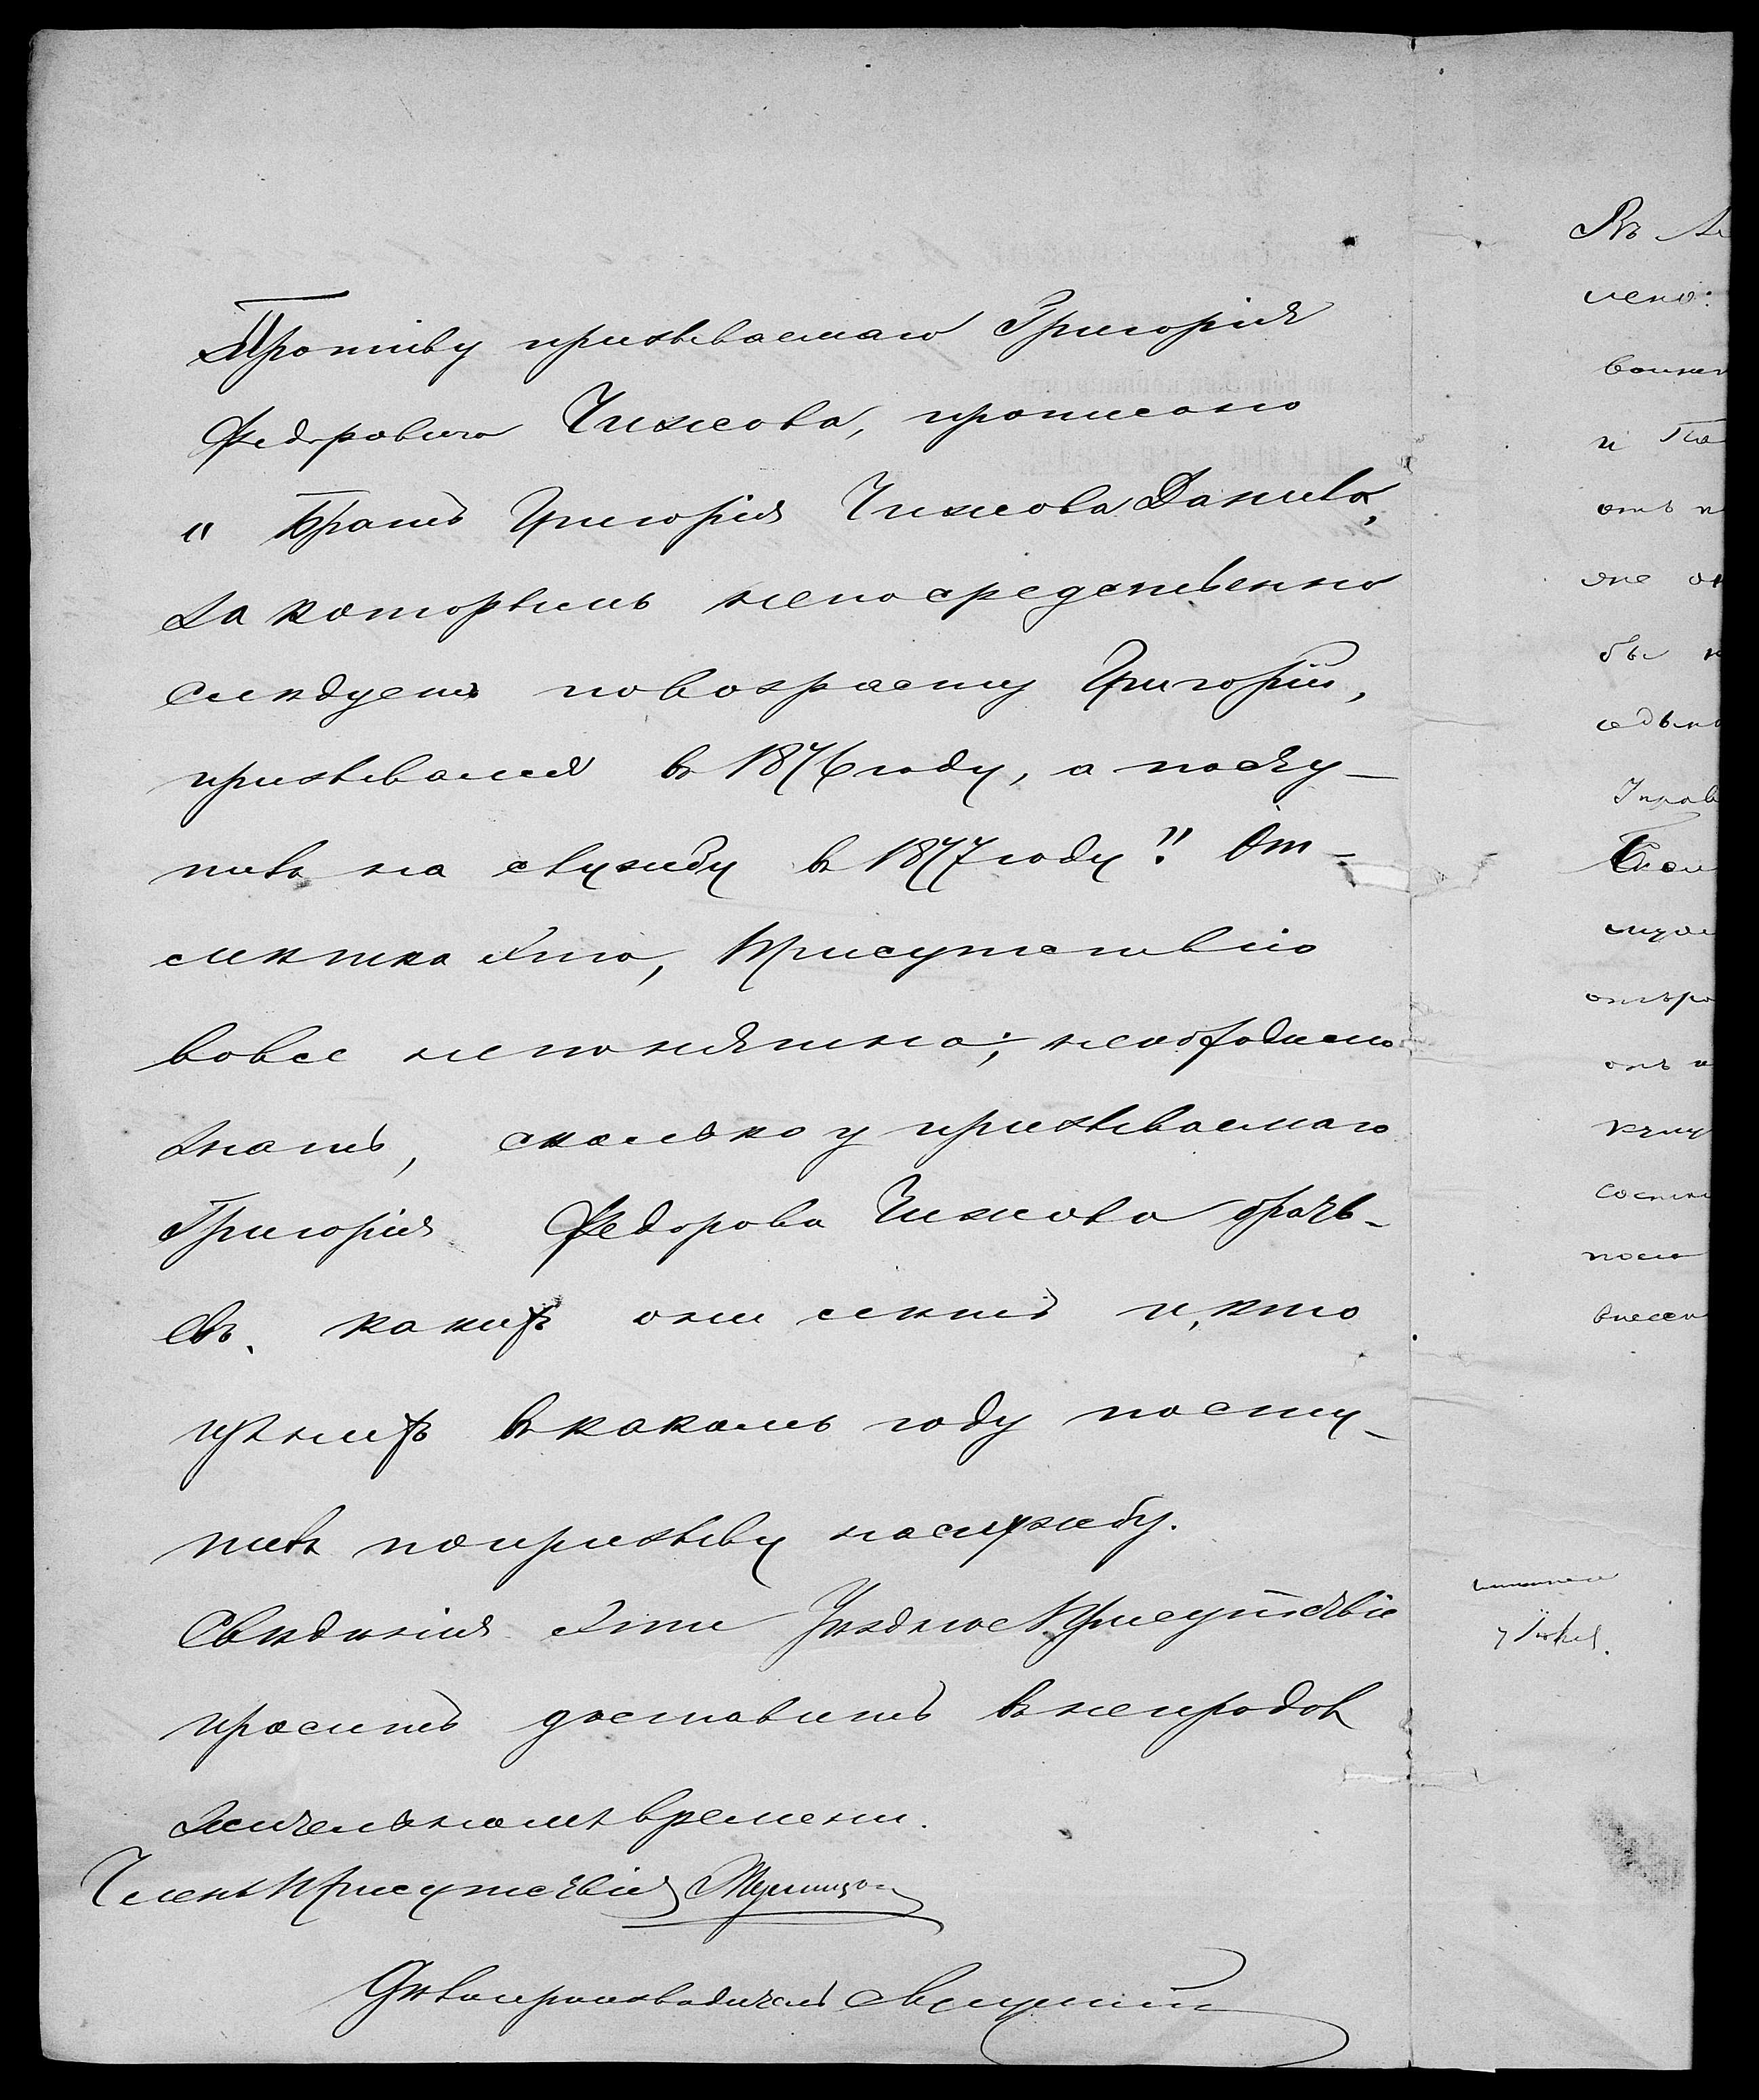 Противу призываемаго Григорія
Федоровича Чижова, прописано
„ Братъ Григорія Чижова Данило,
за которымъ непосредственно
слѣдуетъ по возрасту Григорій,
призывался въ 1876 году, а посту-
пилъ на службу въ 1877 году". От-
мѣтка эта, Присутствію
вовсе непонятна; необходимо
знать, сколько у призываемаго
Григорія Федорова Чижова брать-
евъ, какихъ они лѣтъ и, кто
изъ нихъ въ какомъ году посту-
пилъ по призыву на службу.
Свѣдѣнія эти Уѣздное Присутствіе
проситъ доставить въ непродол
жительномъ времени.
Членъ Присутствія
Дѣлопроизводитель
Въ
лено.
воинс
и По
отъ н
же
бы
седьм
отсро
онъ
кему
состо
посл
внесен